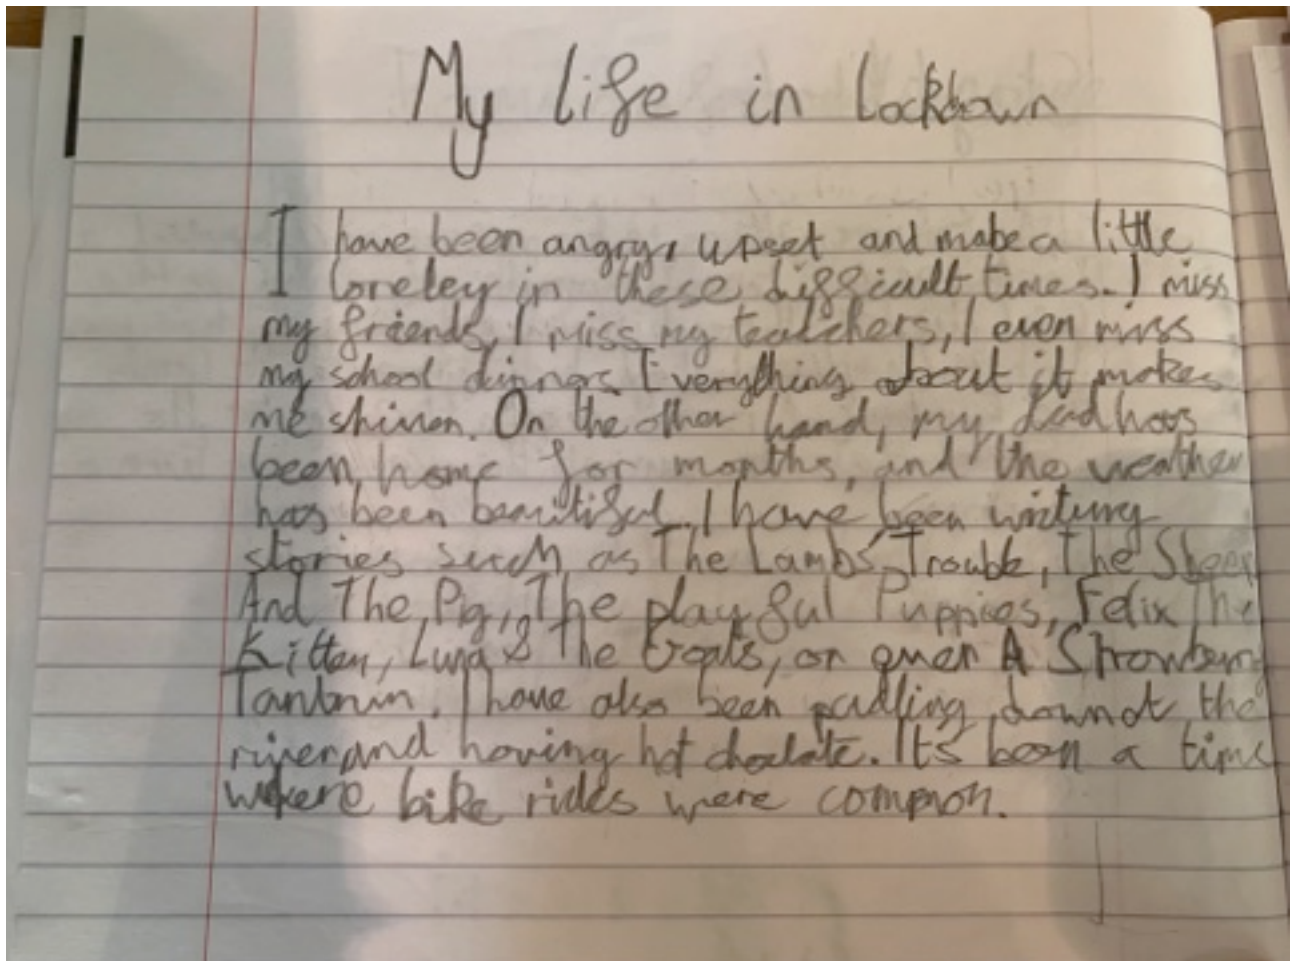 My life in lockdown
I have been angry, upset and mabe a little
loneley in these difficult times. I miss
my friends, I miss my teatchers, I even miss
my school dinners. Everything about it makes
me shiver. On the other hand, my dad has
been home for months, and the weather
has been beautiful. I have been writing
stories such as The Lambs' Trouble, The Sheep
And The Pig, The playful Puppies, Felix The
Kitten, Luna & The Goats, or even A Strawberry
Tantrum. I have also been padling down at the
river and having hot choclate. It's been a time
where bike rides were common.